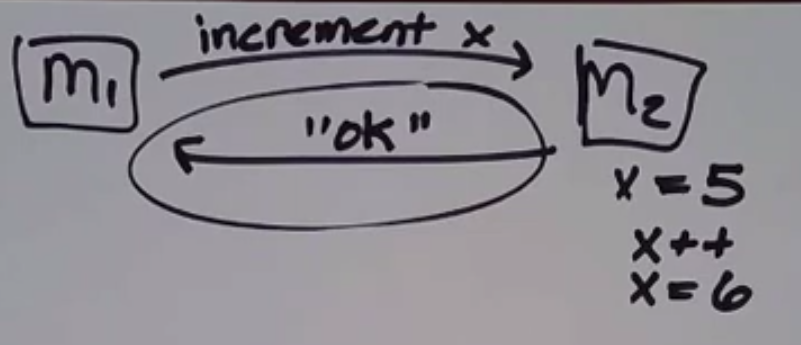 increment x
M1
M2
"ok"
x = 5
x++
x = 6